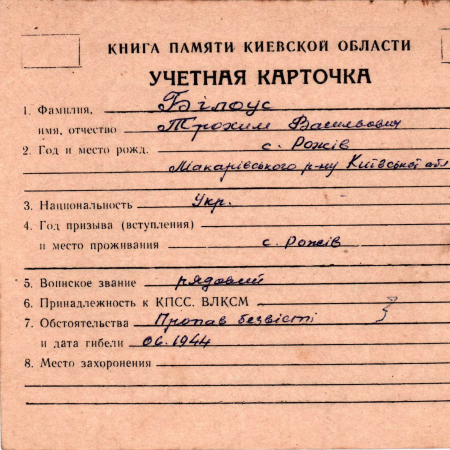 КНИГА ПАМЯТИ КИЕВСКОЙ ОБЛАСТИ
УЧЕТНАЯ КАРТОЧКА
1. Фамилия, Білоус
имя, отчество Трохим Васильович
2. Год и место рожд. с. Рожів
Макарівського р-ну Київської обл
3. Национальность Укр.
4. Год призыва (вступления)
и место проживания с. Рожів
5. Воинское звание рядовий
6. Принадлежность к КПСС. ВЛКСМ
7. Обстоятельства Пропав безвісті
и дата гибели 06.1944
8. Место захоронения